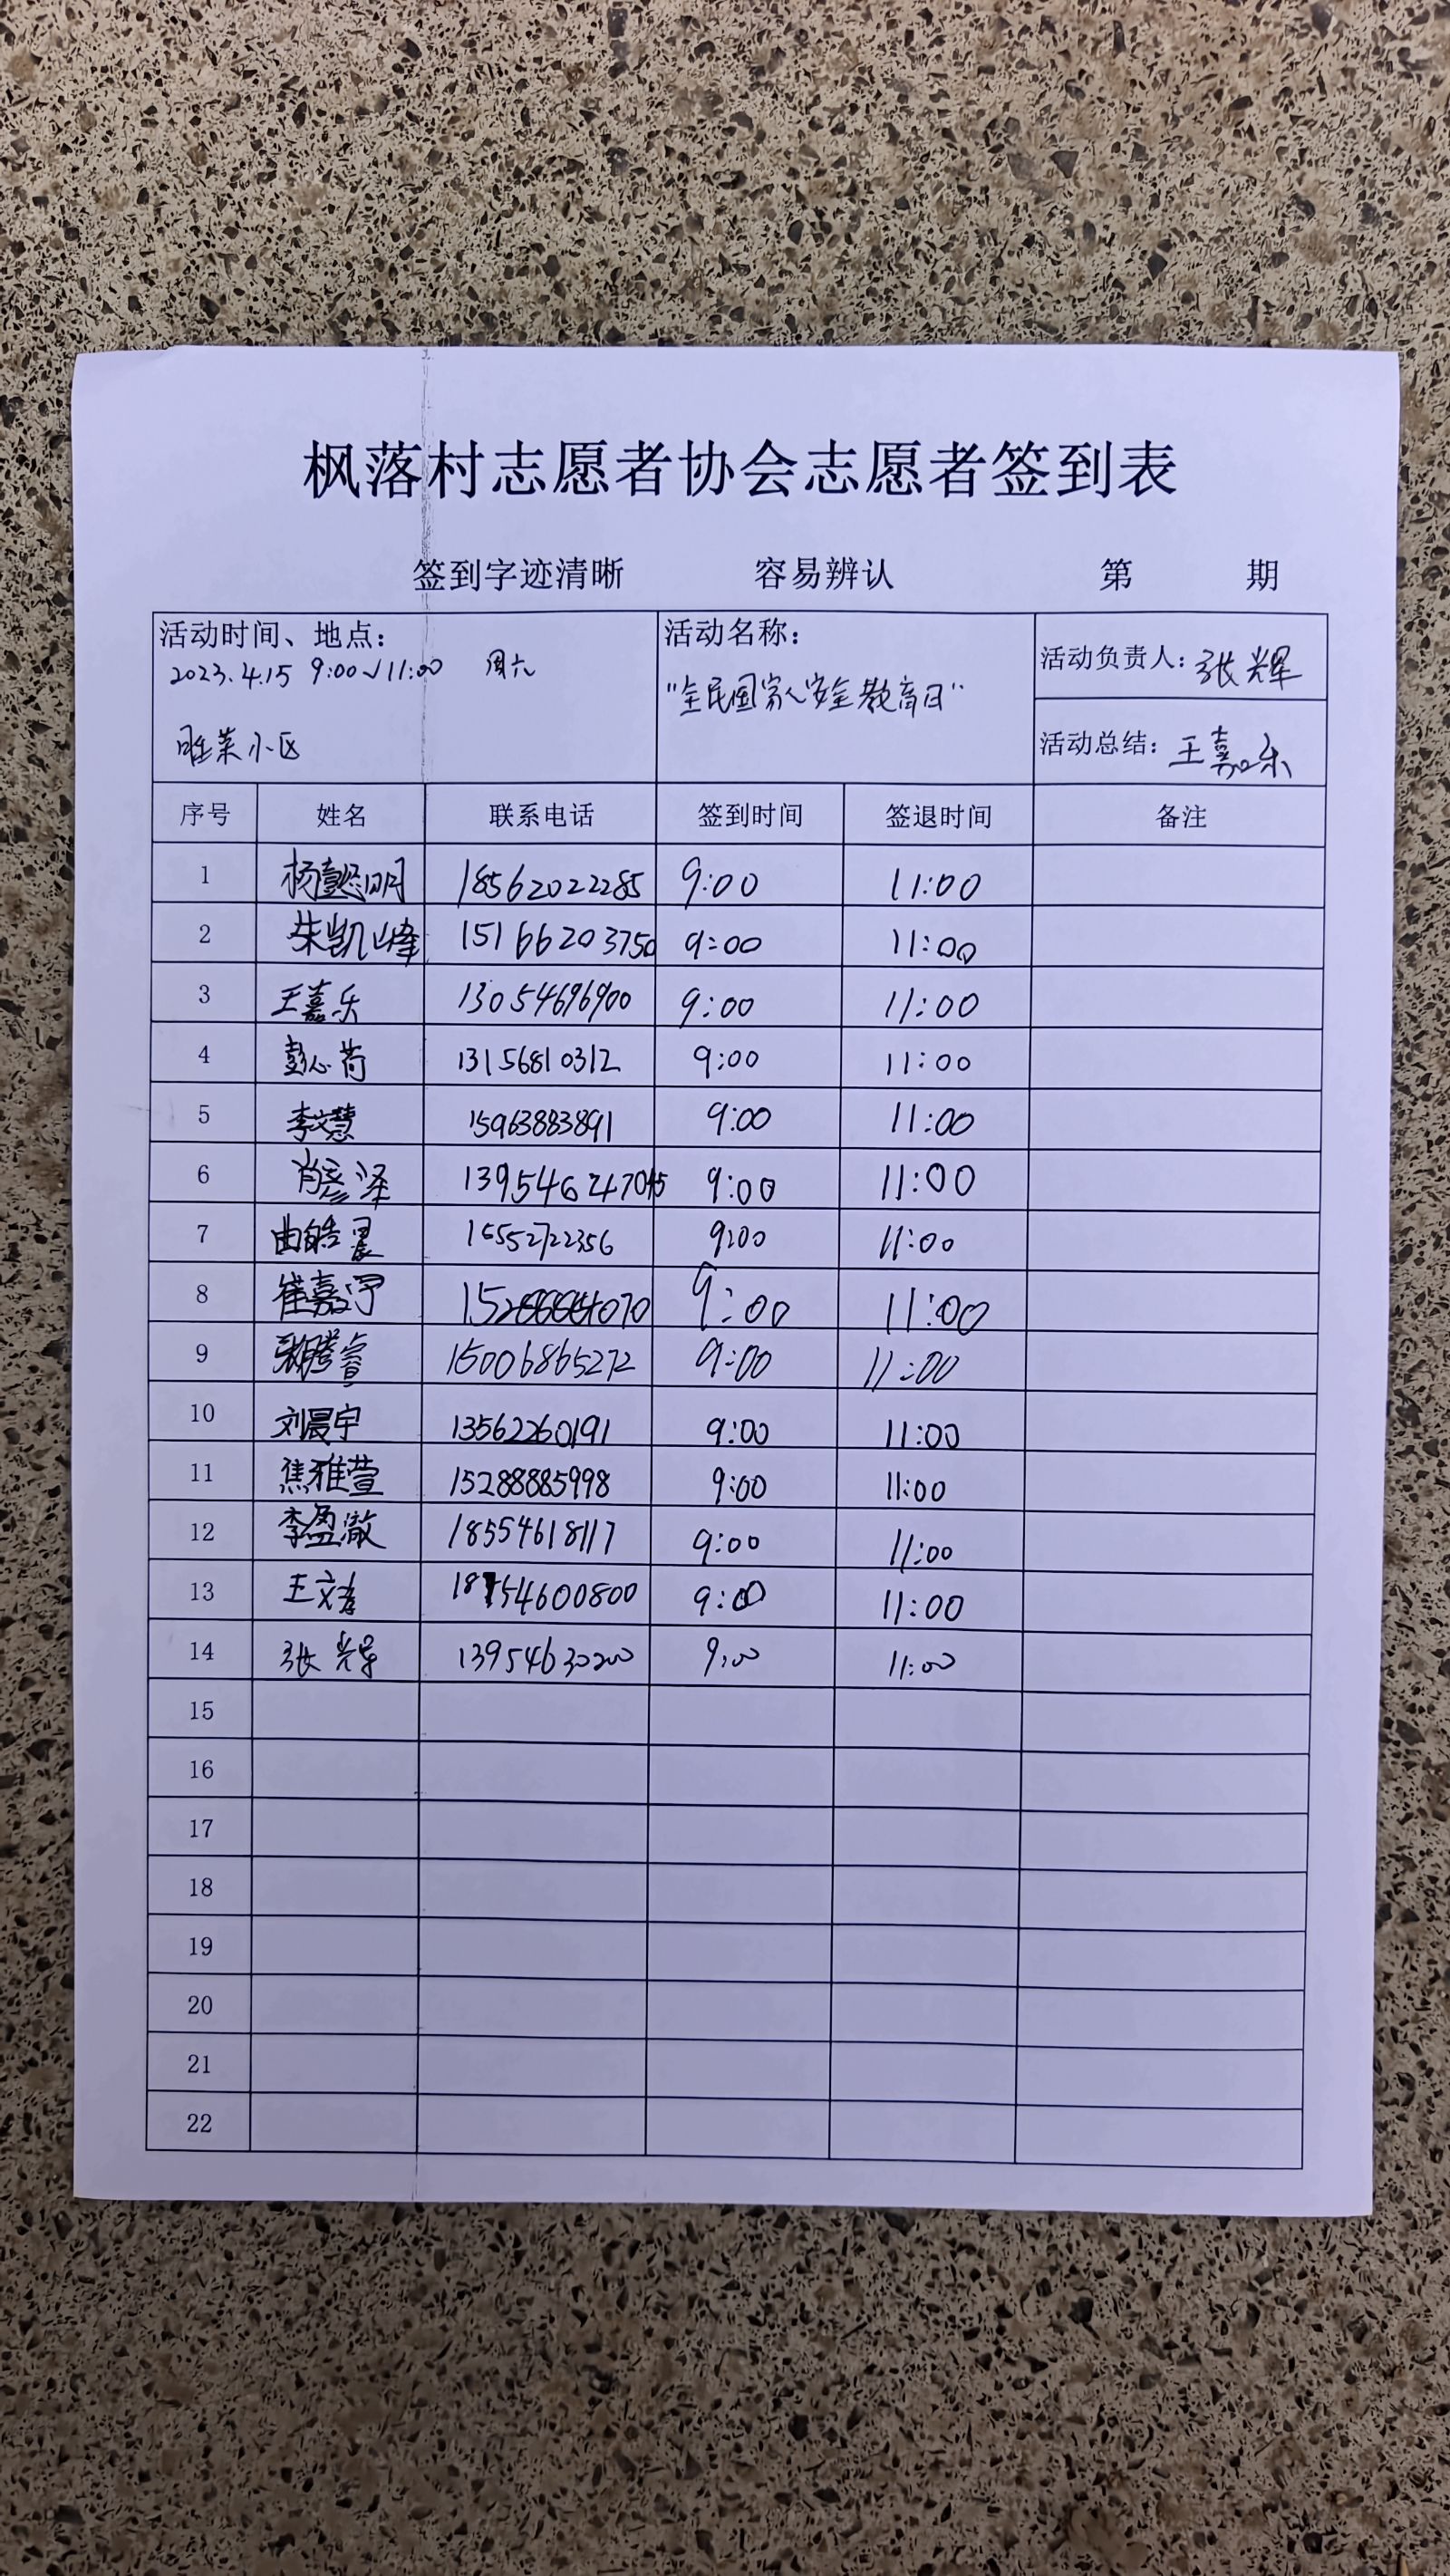 枫落村志愿者协会志愿者签到表
签到字迹清晰 容易辨认 第 期
活动时间、地点： 活动名称：
2023.4.15 9:00~11:00 周六 活动负责人：张辉
"全民国家安全教育日"
小区 活动总结：王嘉乐
序号 姓名 联系电话 签到时间 签退时间 备注
1 杨懿明 18562022285 9:00 11:00
2 朱凯峰 15166203750 9:00 11:00
3 王嘉乐 13054696900 9:00 11:00
4 彭心荷 13156810312 9:00 11:00
5 李文慧 15963883891 9:00 11:00
6 肖彦泽 9:00 11:00
7 曲皓晨 15552722356 9:00 11:00
8 崔嘉 9:00 11:00
9 15006865272 9:00 11:00
10 刘晨宇 13562260191 9:00 11:00
11 焦雅萱 15288885998 9:00 11:00
12 李盈澈 18554618117 9:00 11:00
13 王文 9:00 11:00
14 张辉 13954630200 9:00 11:00
15
16
17
18
19
20
21
22